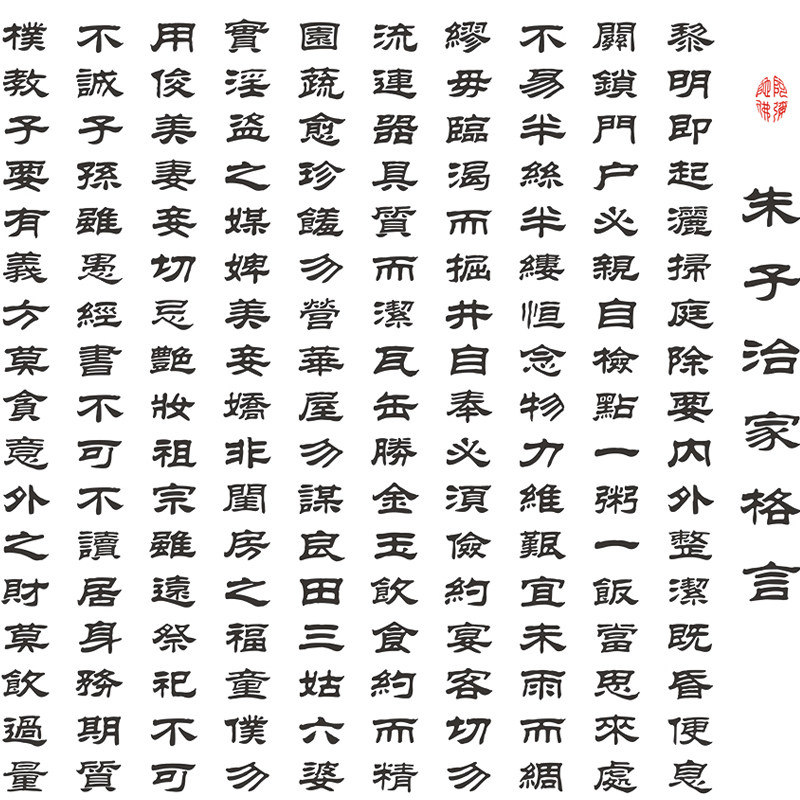 阿彌陀佛
朱子治家格言
黎明即起灑掃庭除要内外整潔既昏便息
關鎖門户必親自檢點一粥一飯當思來處
不易半絲半縷恒念物力維艱宜未雨而綢
繆毋臨渴而掘井自奉必須儉約宴客切勿
流連器具質而潔瓦缶勝金玉飲食約而精
園蔬愈珍饈勿營華屋勿謀良田三姑六婆
實淫盜之媒婢美妾嬌非閨房之福童僕勿
用俊美妻妾切忌艷妝祖宗雖遠祭祀不可
不誠子孫雖愚經書不可不讀居身務期質
樸教子要有義方莫貪意外之財莫飲過量